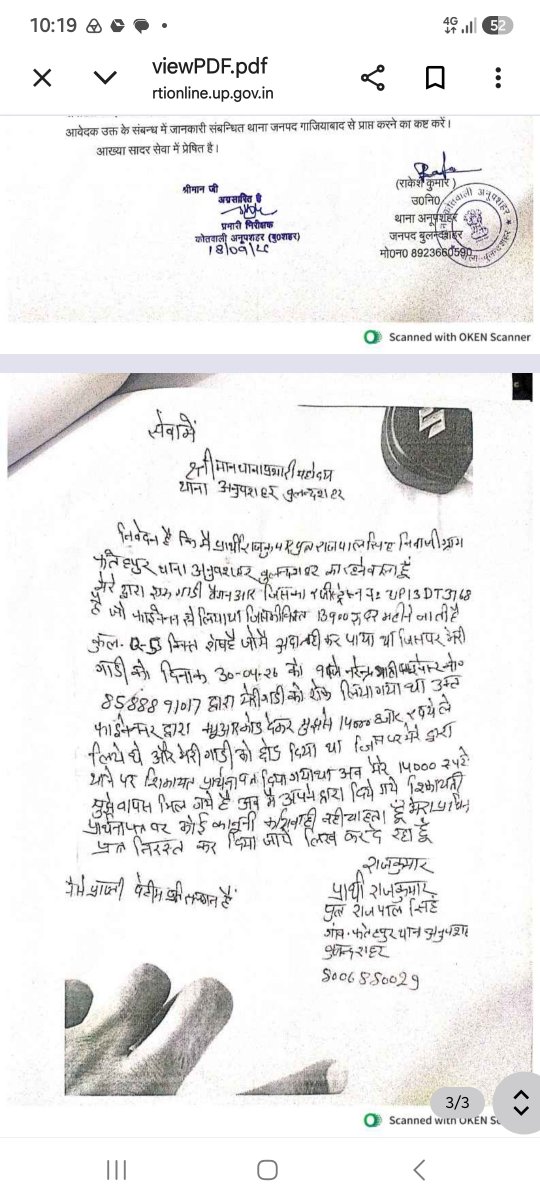 10:19
4G
52
viewPDF.pdf
rtionline.up.gov.in
आवेदक उक्त के संबन्ध में जानकारी संबन्धित थाना जनपद गाजियाबाद से प्राप्त करने का कष्ट करें।
आख्या सादर सेवा में प्रेषित है।
श्रीमान जी
अग्रसारित है
प्रभारी निरीक्षक
कोतवाली अनूपशहर (बु०शहर)
(राकेश कुमार)
उ0नि0
थाना अनूपशहर
जनपद बुलन्दशहर
मो0न0 8923660590
Scanned with OKEN Scanner
सेवामें
श्रीमान थाना प्रभारी महोदय
थाना अनुपशहर बुलन्दशहर
निवेदन है कि मै प्रार्थी राजकुमार पुत्र राजपाल सिंह निवासी ग्राम
फतेहपुर थाना अनुपशहर बुलन्दशहर का रहने वाला हूँ
मेरे द्वारा एक गाडी वैगन आर जिसका रजिस्ट्रेशन नं UP13DT3768
है जो फाईनेंस से लिया था जिसकी किस्त 13900 रु हर महीने जाती है
कुल किस्त शेष है जो मै अदा नही कर पाया था जिसपर मेरी
गाडी को दिनांक 30-04-26 को
8588891017 द्वारा मेरी गाडी को रोक लिया गया था उक्त
फाईनेन्सर द्वारा क्यूआर कोड देकर मुझसे 14000 रुपये ले
लिये थे और मेरी गाडी को छोड दिया था जिस पर मेरे द्वारा
थाने पर शिकायत प्रार्थना पत्र दिया गया था अब मेरे 14000 रुपये
मुझे वापस मिल गये है अब मै अपने द्वारा दिये गये शिकायती
प्रार्थना पत्र पर कोई कानूनी कार्यवाही नही चाहता हूँ मेरा प्रार्थना
पत्र निरस्त कर दिया जाये लिख कर दे रहा हूँ
राजकुमार
प्रार्थी राजकुमार
पुत्र राजपाल सिंह
गांव फतेहपुर थाना अनुपशहर
बुलन्दशहर
8006880029
3/3
Scanned with OKEN